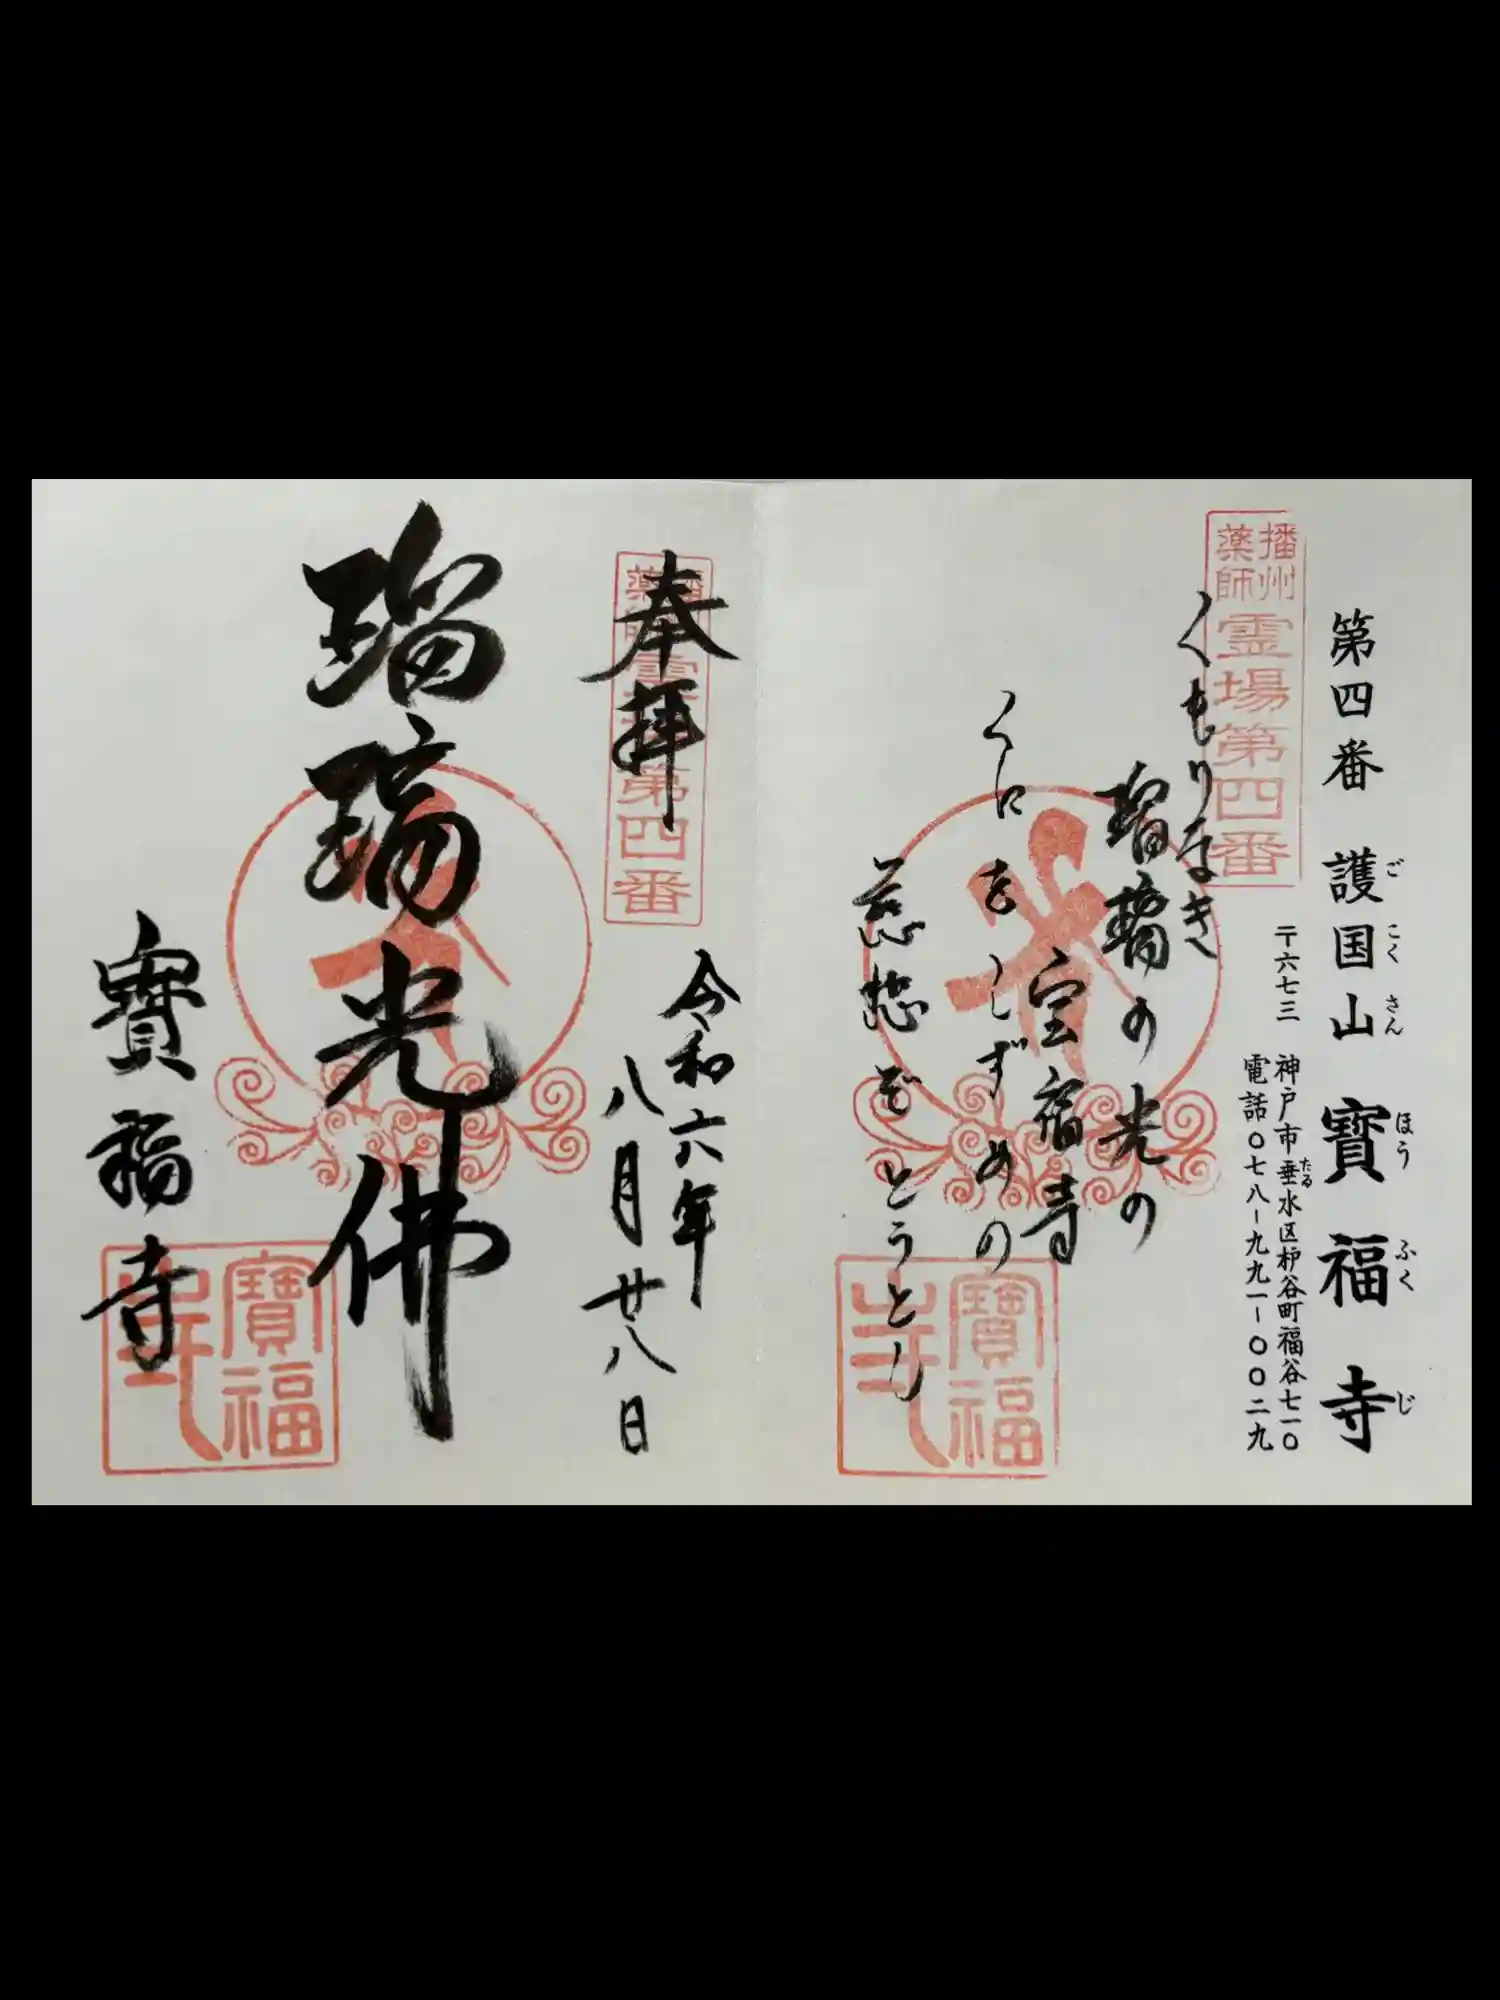 第四番 護国山 寶福寺
ご こく さん ほう ふく じ
〒六七三 神戸市垂水区枦谷町福谷七一〇
たる
電話〇七八ー九九一ー〇〇二九
播州
薬師
霊場第四番
くもりなき
瑠璃の光の
宝福寺
くにをしずめの
慈悲ぞとうとし
寶福
寺
奉拝
播州
薬師
霊場第四番
令和六年
八月廿八日
瑠璃光佛
寶福寺
寶福
寺